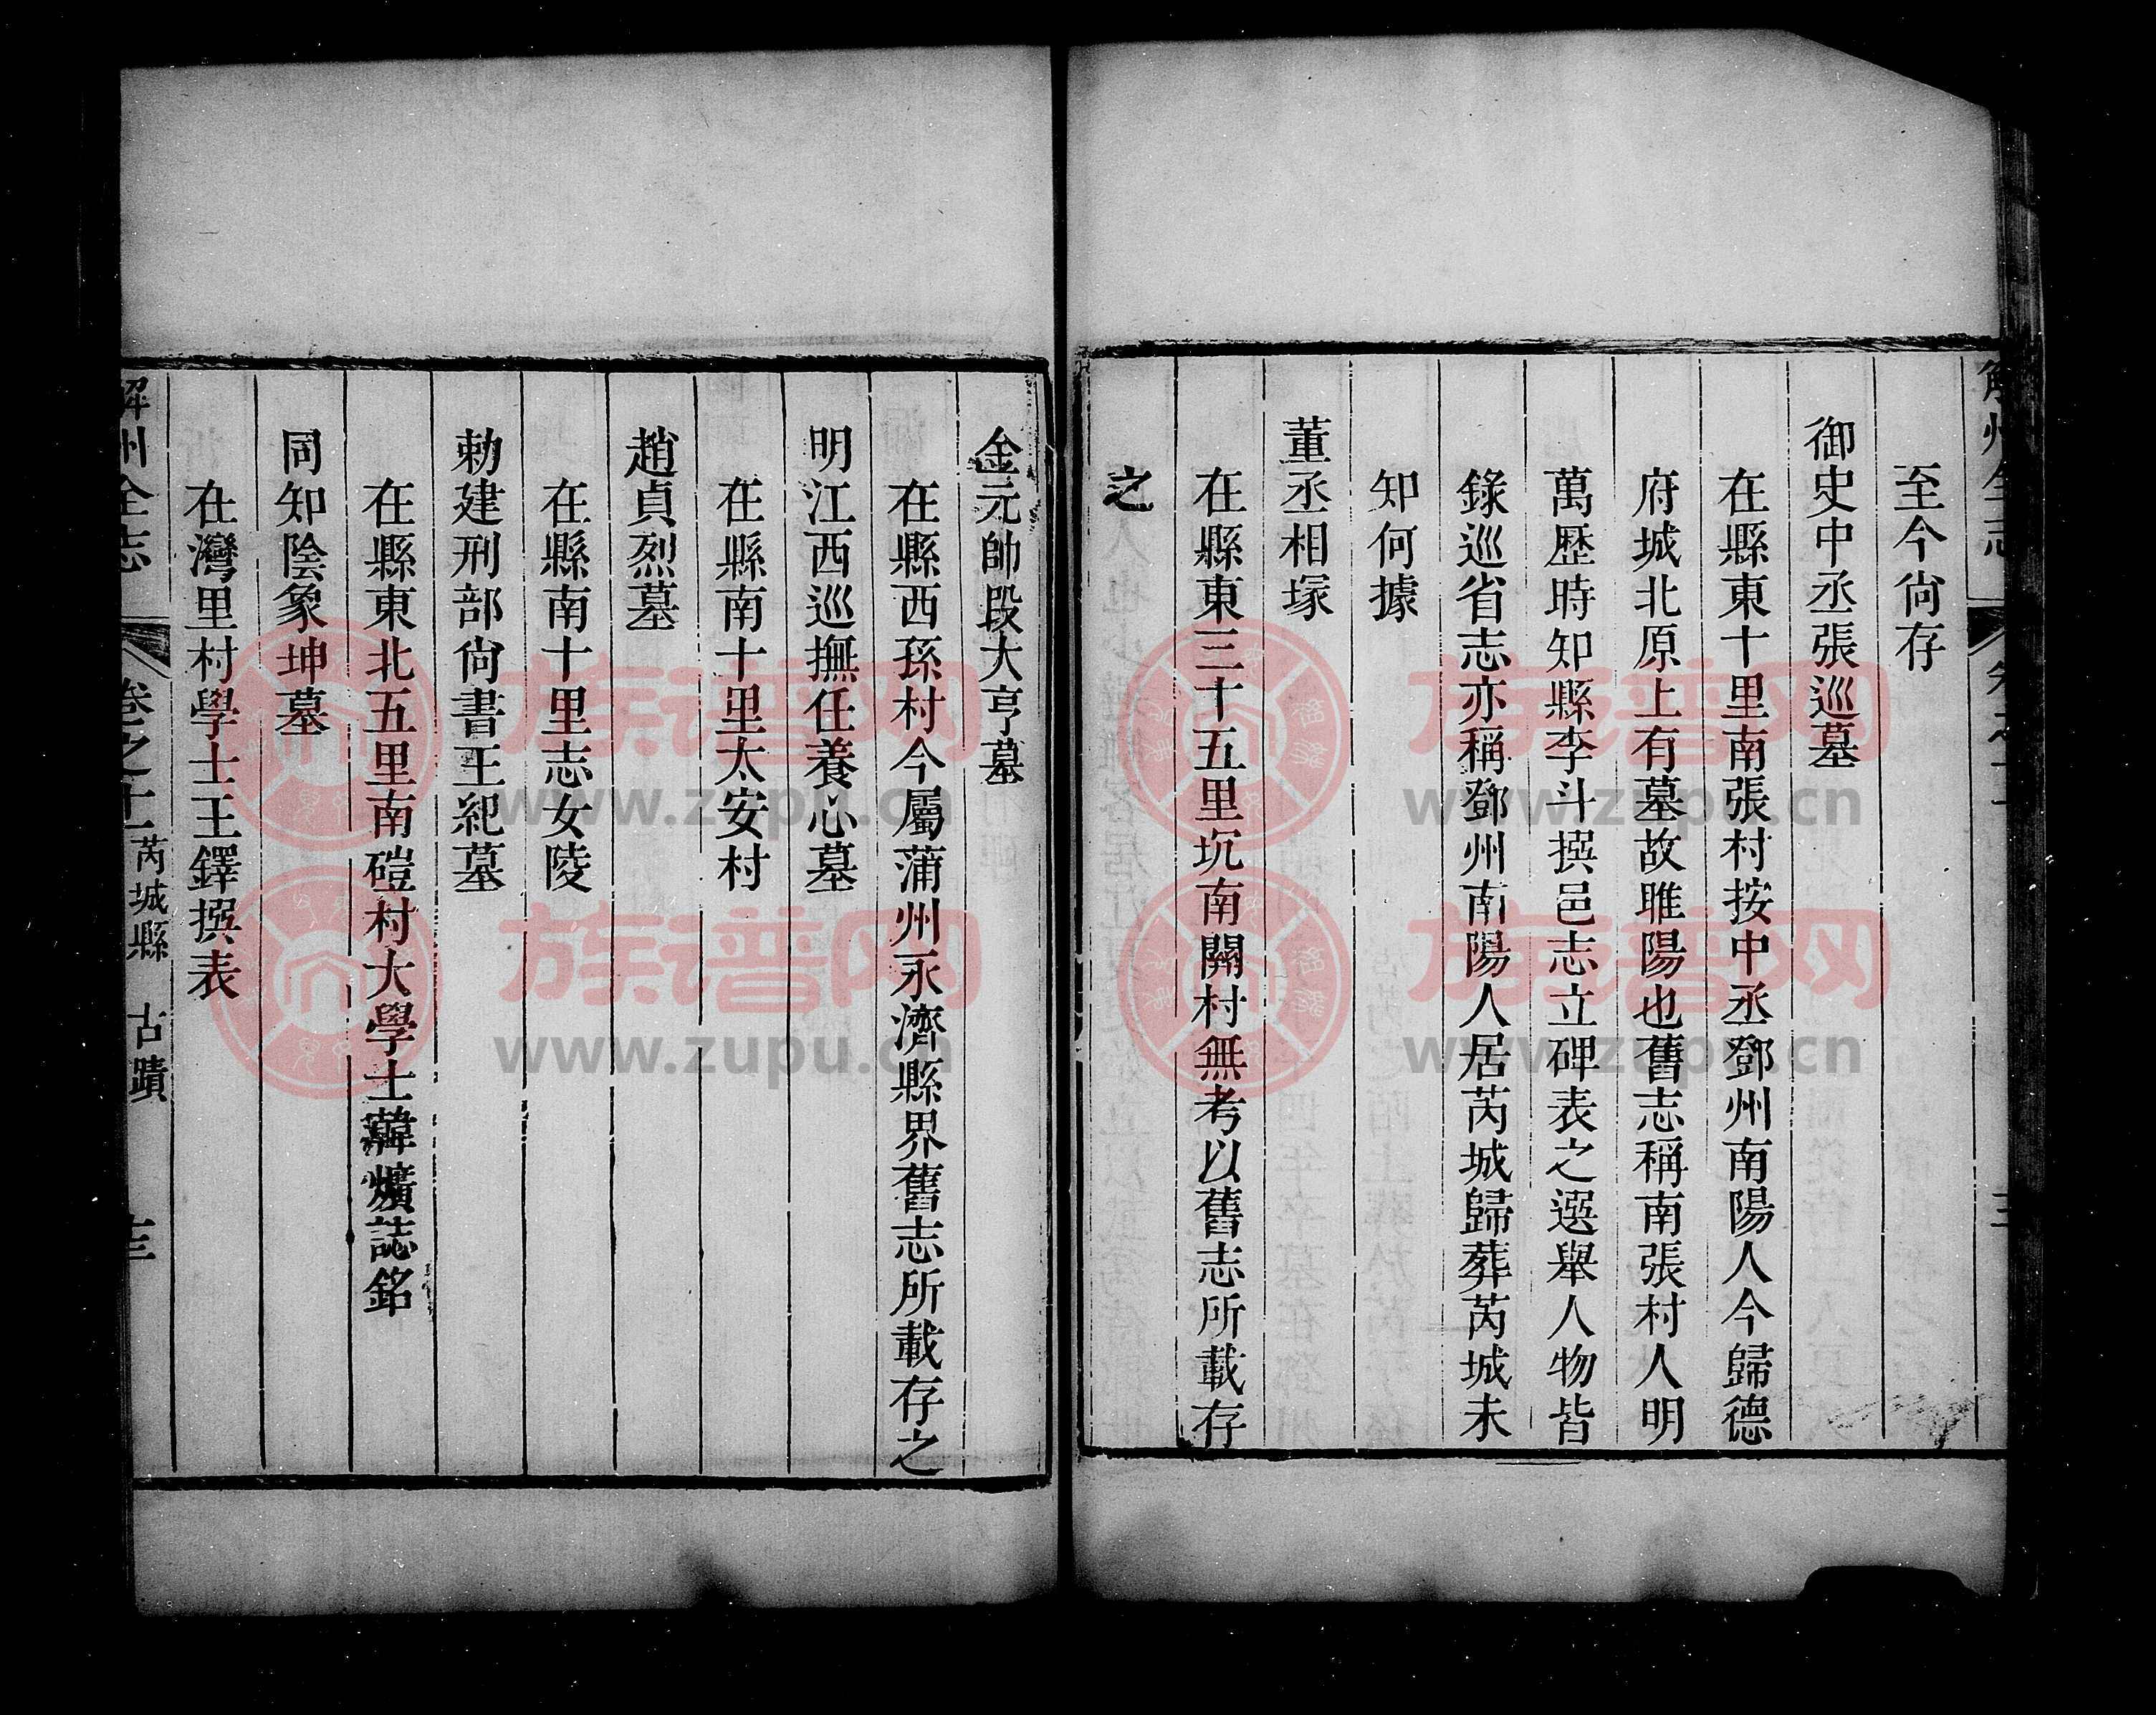 至今尙存
御史中丞張巡墓
在縣東十里南張村按中丞鄧州南陽人今歸德
府城北原上有墓故睢陽也舊志稱南張村人明
萬歷時知縣李斗撰邑志立碑表之選舉人物皆
錄巡省志亦稱鄧州南陽人居芮城歸葬芮城未
知何據
董丞相塚
在縣東三十五里坑南關村無考以舊志所載存
之
金元帥段大亨墓
在縣西孫村今屬蒲州永濟縣界舊志所載存之
明江西巡撫任養心墓
在縣南十里太安村
趙貞烈墓
在縣南十里志女陵
勅建刑部尙書王紀墓
在縣東北五里南磑村大學士韓爌誌銘
同知陰象坤墓
在灣里村學士王鐸撰表
解州全志 卷之十一 芮城縣 古蹟 十三
族谱网
www.zupu.cn
族谱网
www.zupu.cn
族谱网
www.zupu.cn
族谱网
www.zupu.cn